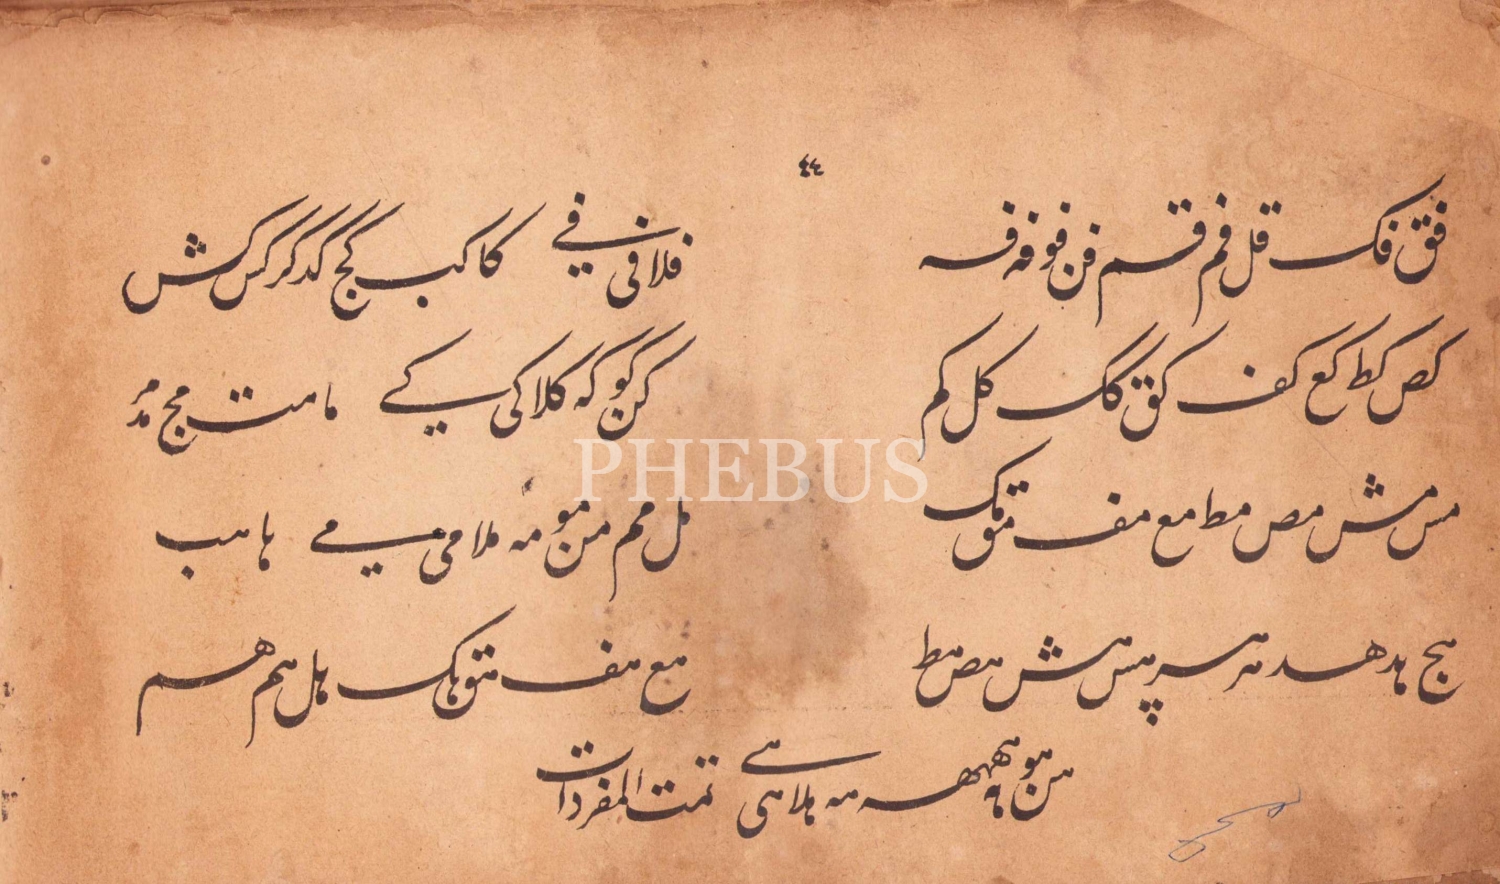 ٤٤
فق فک قل فم قسم فن فو فه فسه فلا فی فے کا کب کج کد کر کس کش
کص کط کع کف کق کگ کل کم کن کو که کلا کی کے ما مت مج مد مر
مس مش مص مط مع مف مق مک مل مم من مو مه ملا می مے ها هب
هج هد هر هس هش هص هط هع هف هق هک هل هم هم
هن هو هه هلا هی هے تمت المفردات
PHEBUS